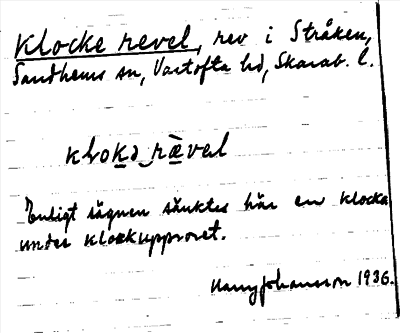 Klocke revel, rev i Stråken,
Sandhems sn, Vartofta hd, Skarab. l.
kloka rævel
Enligt sägnen sänktes här en klocka
under klockupproret.
Harry Johansson 1936.